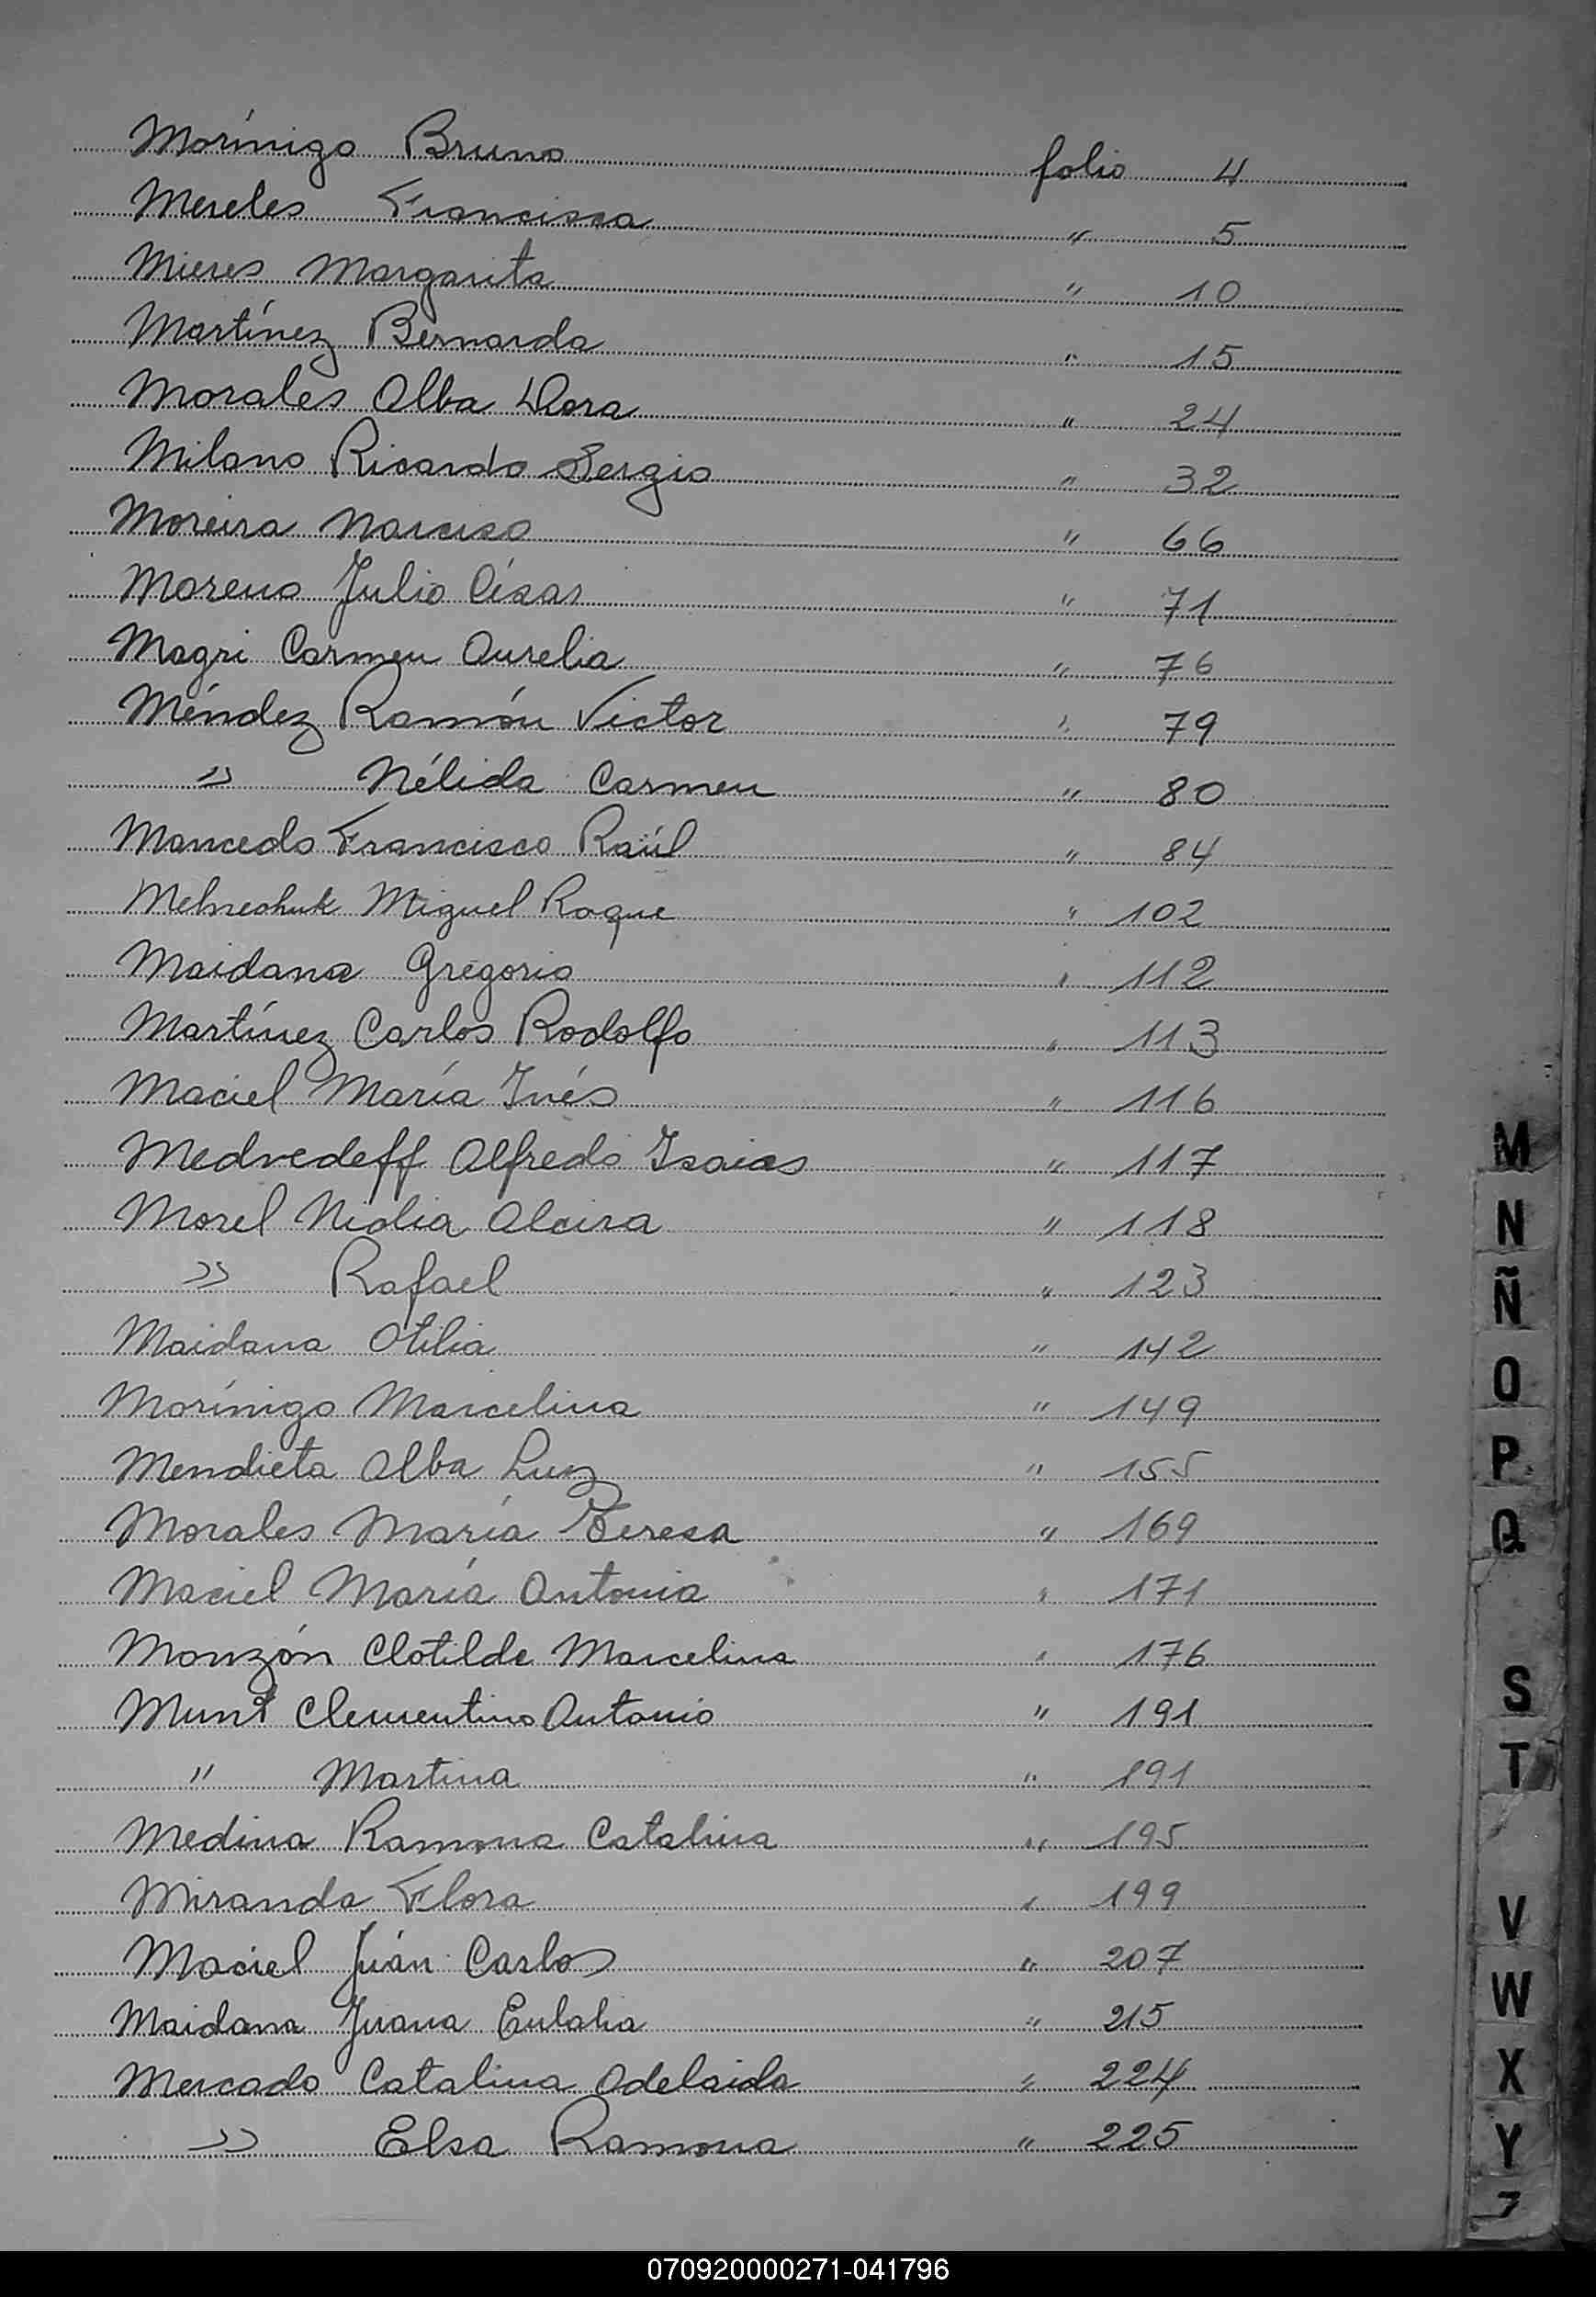 Morínigo Bruno folio 4
Mereles Francisca " 5
Mieres Margarita " 10
Martínez Bernarda " 15
Morales Alba Dora " 24
Milano Ricardo Sergio " 32
Moreira Narciso " 66
Moreno Julio César " 71
Magri Carmen Aurelia " 76
Méndez Ramón Victor " 79
" Nélida Carmen " 80
Mancedo Francisco Raúl " 84
Miguel Roque " 102
Maidana Gregorio " 112
Martínez Carlos Rodolfo " 113
Maciel María Inés " 116
Medvedeff Alfredo Isaias " 117
Morel Nidia Alcira " 118
" Rafael " 123
Maidana Otilia " 142
Morínigo Marcelina " 149
Mendieta Alba Luz " 155
Morales María Teresa " 169
Maciel María Antonia " 171
Monzón Clotilde Marcelina " 176
Clementino Antonio " 191
" Martina " 191
Medina Ramona Catalina " 195
Miranda Flora " 199
Maciel Juán Carlos " 207
Maidana Juana Eulalia " 215
Mercado Catalina Adelaida " 224
" Elsa Ramona " 225
M
N
Ñ
O
P
Q
S
T
V
W
X
Y
Z
070920000271-041796